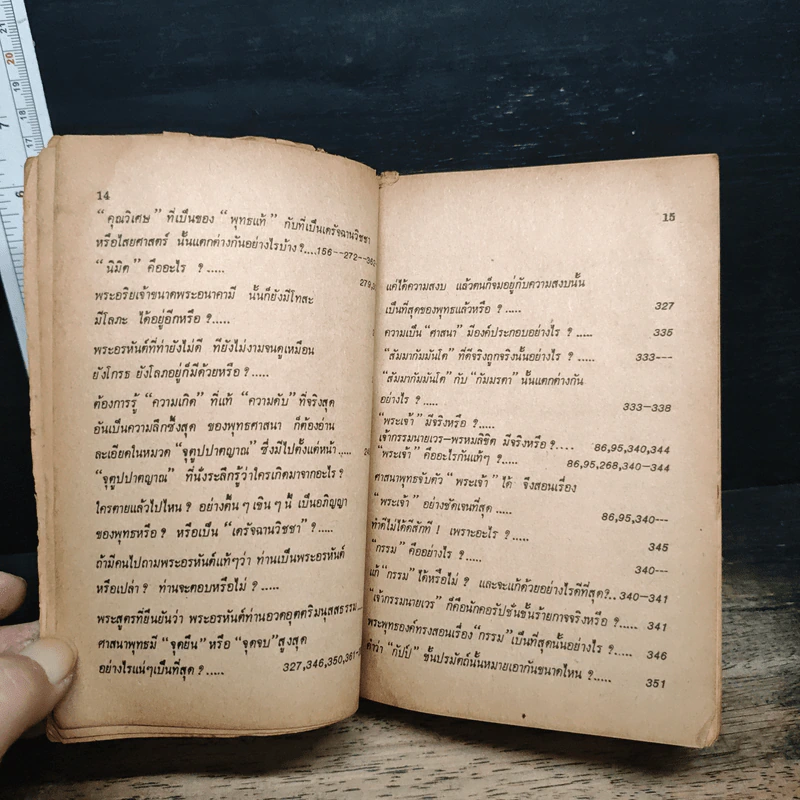 14
“คุณวิเศษ” ที่เป็นของ “พุทธแท้” กับที่เป็นเดรัจฉานวิชชา
หรือไสยศาสตร์ นั้นแตกต่างกันอย่างไรบ้าง ?....156--272--362
“นิมิต” คืออะไร ?.....
279,2
พระอริยเจ้าขนาดพระอนาคามี นั้นก็ยังมีโทสะ
มีโลภะ ได้อยู่อีกหรือ ?.....
พระอรหันต์ที่ท่ายังไม่ดี ทียังไม่งามจนดูเหมือน
ยังโกรธ ยังโลภอยู่ก็มีด้วยหรือ ?.....
ต้องการรู้ “ความเกิด” ที่แท้ “ความดับ” ที่จริงสุด
อันเป็นความลึกซึ้งสุด ของพุทธศาสนา ก็ต้องอ่าน
ละเอียดในหมวด “จุตูปปาตญาณ” ซึ่งมีไปตั้งแต่หน้า.....
“จุตูปปาตญาณ” ที่นั่งระลึกรู้ว่าใครเกิดมาจากอะไร ?
ใครตายแล้วไปไหน ? อย่างตื้น ๆ เขิน ๆ นี้ เป็นอภิญญา
ของพุทธหรือ ? หรือเป็น “เดรัจฉานวิชชา” ?.....
ถ้ามีคนไปถามพระอรหันต์แท้ๆว่า ท่านเป็นพระอรหันต์
หรือเปล่า ? ท่านจะตอบหรือไม่ ?.....
พระสูตรที่ยืนยันว่า พระอรหันต์ท่านอวดอุตตริมนุสสธรรม....
ศาสนาพุทธมี “จุดยืน” หรือ “จุดจบ” สูงสุด
อย่างไรแน่ๆเป็นที่สุด ?..... 327,346,350,361-
15
แค่ได้ความสงบ แล้วคนก็จมอยู่กับความสงบนั้น
เป็นที่สุดของพุทธแล้วหรือ ?..... 327
ความเป็น “ศาสนา” มีองค์ประกอบอย่างไร ?..... 335
“สัมมากัมมันโต” ที่ดีจริงถูกจริงนั้นอย่างไร ?..... 333---
“สัมมากัมมันโต” กับ “กัมมรตา” นั้นแตกต่างกัน
อย่างไร ?..... 333–338
“พระเจ้า” มีจริงหรือ ?.....
เจ้ากรรมนายเวร–พรหมลิขิต มีจริงหรือ ?.... 86,95,340,344
“พระเจ้า” คืออะไรกันแท้ๆ ?..... 86,95,268,340–344
ศาสนาพุทธจับตัว “พระเจ้า” ได้ จึงสอนเรื่อง
“พระเจ้า” อย่างชัดเจนที่สุด ..... 86,95,340---
ทำดีไม่ได้ดีสักที ! เพราะอะไร ? 345
“กรรม” คืออย่างไร ?..... 340---
แก้ “กรรม” ได้หรือไม่ ? และจะแก้ด้วยอย่างไรดีที่สุด?.. 340–341
“เจ้ากรรมนายเวร” ก็คือนักคอรัปชั่นขั้นร้ายกาจจริงหรือ ?..... 341
พระพุทธองค์ทรงสอนเรื่อง “กรรม” เป็นที่สุดนั้นอย่างไร ?..... 346
คำว่า “กัปป์” ขั้นปรมัตถ์นั้นหมายเอากันขนาดไหน ?..... 351